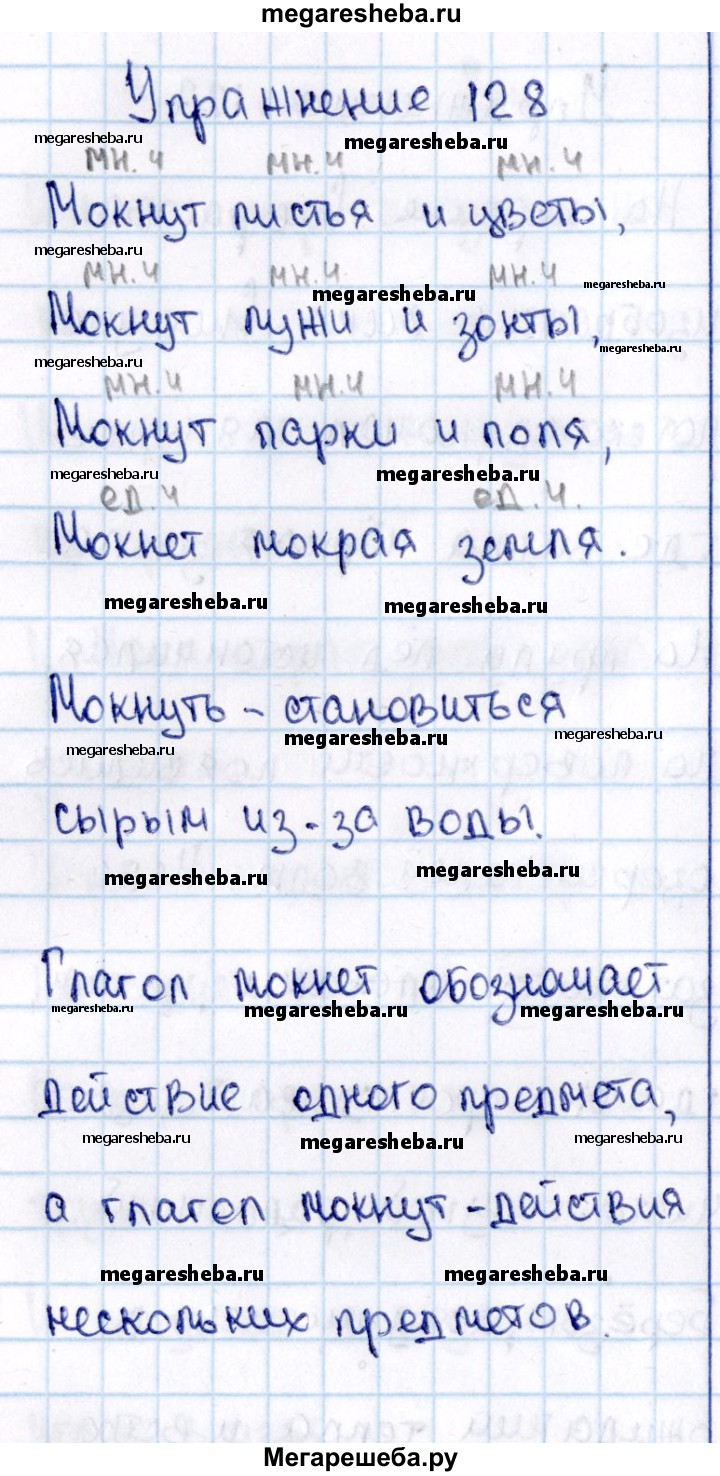 megaresheba.ru
Упражнение 128
megaresheba.ru
megaresheba.ru
мн.ч мн.ч мн.ч
Мокнут листья и цветы,
megaresheba.ru
мн.ч мн.ч мн.ч
megaresheba.ru
megaresheba.ru
Мокнут лужи и зонты,
megaresheba.ru
megaresheba.ru
мн.ч мн.ч мн.ч
Мокнут парки и поля,
megaresheba.ru
megaresheba.ru
ед.ч ед.ч.
Мокнет мокрая земля.
megaresheba.ru
megaresheba.ru
Мокнуть - становиться
megaresheba.ru
megaresheba.ru
megaresheba.ru
сырым из-за воды.
megaresheba.ru
megaresheba.ru
Глагол мокнет обозначает
megaresheba.ru
megaresheba.ru
megaresheba.ru
действие одного предмета,
megaresheba.ru
megaresheba.ru
megaresheba.ru
а глагол мокнут - действия
megaresheba.ru
megaresheba.ru
нескольких предметов.
Мегарешеба.ру